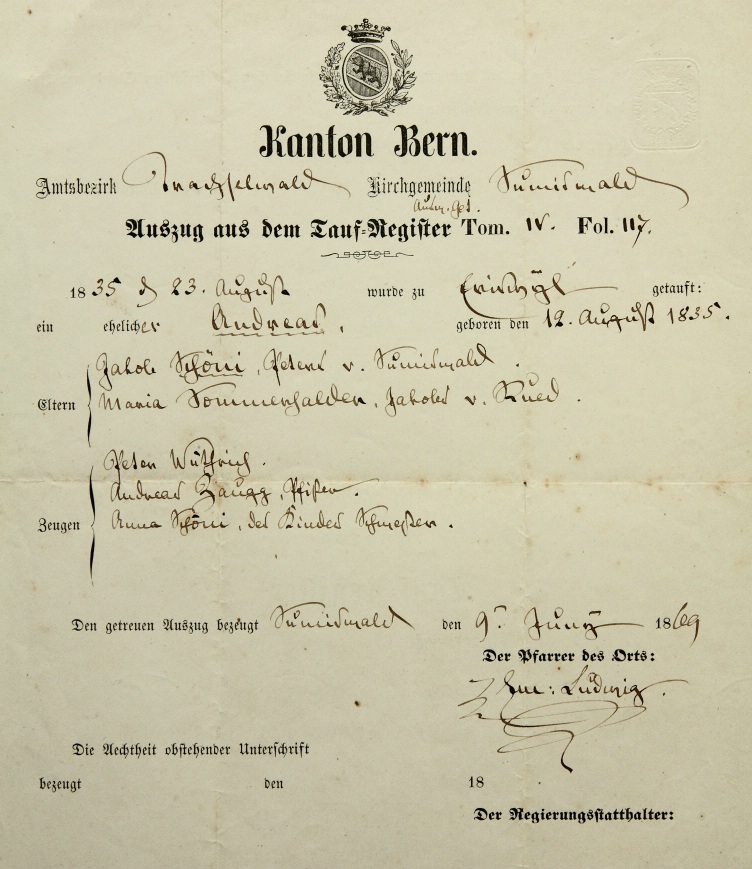 Kanton Bern.
Amtsbezirk Trachselwald Kirchgemeinde Sumiswald
Auszug aus dem Tauf-Register Tom. IV. Fol. 117.
1835 d 23. August wurde zu Eriswyl getauft:
ein ehelicher Andreas, geboren den 12. August 1835.
Eltern
Jakob Schöni, Peters v. Sumiswald.
Maria Sommerhalder, Jakobs v. Rued.
Zeugen
Peter Wüthrich.
Andreas Zaugg, Pfister.
Anna Schöni, des Kindes Schwester.
Den getreuen Auszug bezeugt Sumiswald den 9. Juny 1869
Der Pfarrer des Orts:
Ludwig.
Die Aechtheit obstehender Unterschrift
bezeugt den 18
Der Regierungsstatthalter: